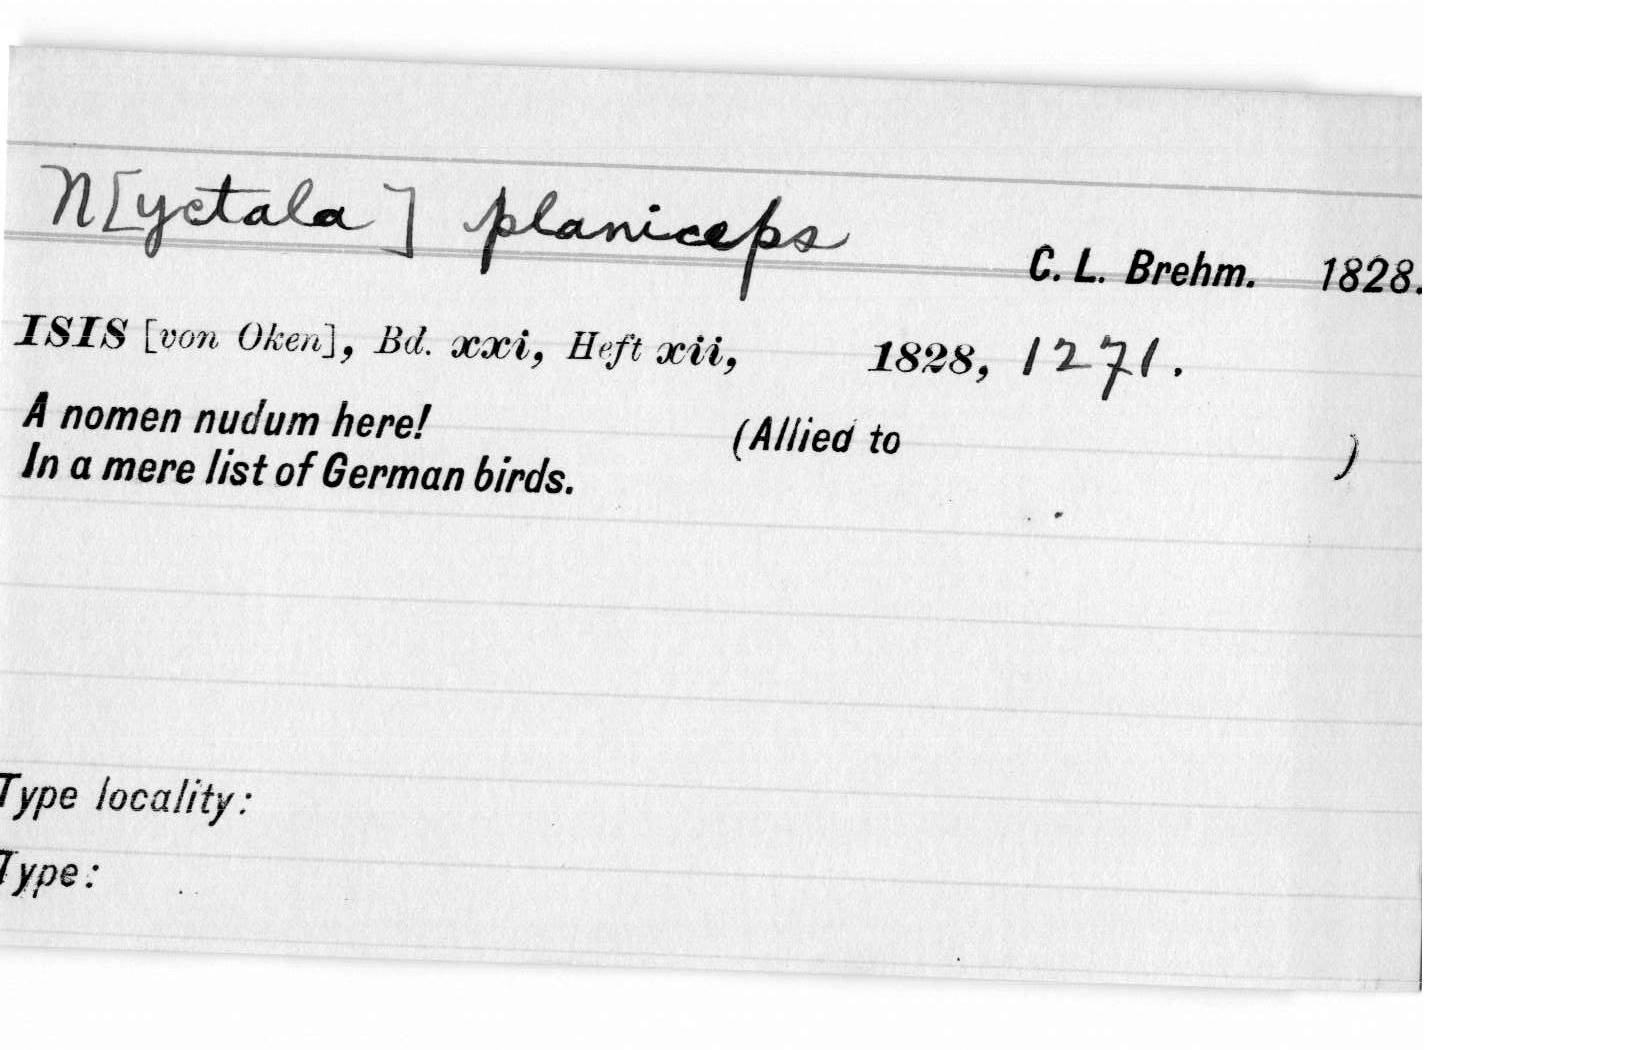 N[yctala] planiceps
C. L. Brehm. 1828.
ISIS [von Oken], Bd. xxi, Heft xii, 1828, 1271.
A nomen nudum here! (Allied to )
In a mere list of German birds.
Type locality:
Type: